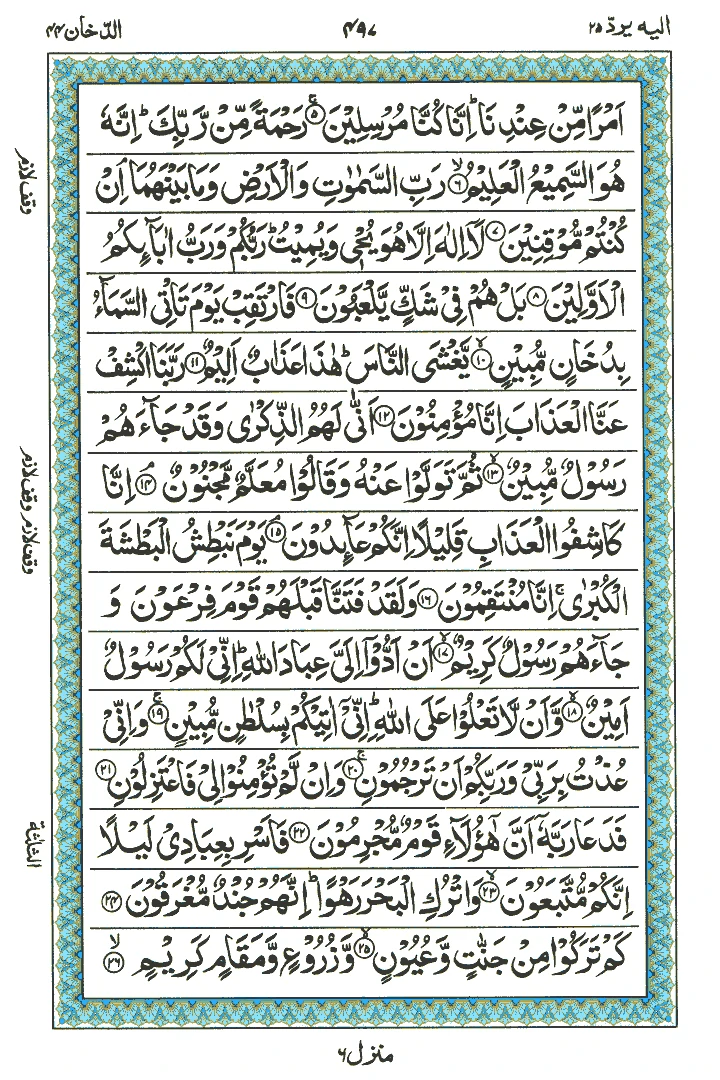 الیه یردّ ۲۵
۴۹۷
الدّخان ۴۴
اَمۡرًا مِّنۡ عِنۡدِنَا ؕ اِنَّا كُنَّا مُرۡسِلِيۡنَ ۚ‏ ﴿۵﴾ رَحۡمَةً مِّنۡ رَّبِّكَ ؕ اِنَّهٗ
هُوَ السَّمِيۡعُ الۡعَلِيۡمُ ۙ‏ ﴿۶﴾ رَبِّ السَّمٰوٰتِ وَالۡاَرۡضِ وَمَا بَيۡنَهُمَا ۘ اِنۡ
كُنۡتُمۡ مُّوۡقِنِيۡنَ‏ ﴿۷﴾ لَاۤ اِلٰهَ اِلَّا هُوَ يُحۡىٖ وَيُمِيۡتُ ؕ رَبُّكُمۡ وَرَبُّ اٰبَآٮِٕكُمُ
الۡاَوَّلِيۡنَ‏ ﴿۸﴾ بَلۡ هُمۡ فِىۡ شَكٍّ يَّلۡعَبُوۡنَ‏ ﴿۹﴾ فَارۡتَقِبۡ يَوۡمَ تَاۡتِى السَّمَآءُ
بِدُخَانٍ مُّبِيۡنٍ ۙ‏ ﴿۱۰﴾ يَّغۡشَى النَّاسَ ؕ هٰذَا عَذَابٌ اَلِيۡمٌ‏ ﴿۱۱﴾ رَبَّنَا اكۡشِفۡ
عَنَّا الۡعَذَابَ اِنَّا مُؤۡمِنُوۡنَ‏ ﴿۱۲﴾ اَنّٰى لَهُمُ الذِّكۡرٰى وَقَدۡ جَآءَهُمۡ
رَسُوۡلٌ مُّبِيۡنٌ ۙ‏ ﴿۱۳﴾ ثُمَّ تَوَلَّوۡا عَنۡهُ وَقَالُوۡا مُعَلَّمٌ مَّجۡنُوۡنٌ ۘ‏ ﴿۱۴﴾ اِنَّا
كَاشِفُوا الۡعَذَابِ قَلِيۡلًا اِنَّكُمۡ عَآٮِٕدُوۡنَ ۘ‏ ﴿۱۵﴾ يَوۡمَ نَبۡطِشُ الۡبَطۡشَةَ
الۡكُبۡرٰى ۚ اِنَّا مُنۡتَقِمُوۡنَ‏ ﴿۱۶﴾ وَلَقَدۡ فَتَنَّا قَبۡلَهُمۡ قَوۡمَ فِرۡعَوۡنَ وَ
جَآءَهُمۡ رَسُوۡلٌ كَرِيۡمٌ ۙ‏ ﴿۱۷﴾ اَنۡ اَدُّوۡۤا اِلَىَّ عِبَادَ اللّٰهِ ؕ اِنِّىۡ لَكُمۡ رَسُوۡلٌ
اَمِيۡنٌ ۙ‏ ﴿۱۸﴾ وَّاَنۡ لَّا تَعۡلُوۡا عَلَى اللّٰهِ ؕ اِنِّىۡۤ اٰتِيۡكُمۡ بِسُلۡطٰنٍ مُّبِيۡنٍ ۚ‏ ﴿۱۹﴾ وَاِنِّىۡ
عُذۡتُ بِرَبِّىۡ وَرَبِّكُمۡ اَنۡ تَرۡجُمُوۡنِ ۚ‏ ﴿۲۰﴾ وَاِنۡ لَّمۡ تُؤۡمِنُوۡا لِىۡ فَاعۡتَزِلُوۡنِ‏ ﴿۲۱﴾
فَدَعَا رَبَّهٗۤ اَنَّ هٰٓؤُلَاۤءِ قَوۡمٌ مُّجۡرِمُوۡنَ‏ ﴿۲۲﴾ فَاَسۡرِ بِعِبَادِىۡ لَيۡلًا
اِنَّكُمۡ مُّتَّبَعُوۡنَ ۙ‏ ﴿۲۳﴾ وَاتۡرُكِ الۡبَحۡرَ رَهۡوًا ؕ اِنَّهُمۡ جُنۡدٌ مُّغۡرَقُوۡنَ‏ ﴿۲۴﴾
كَمۡ تَرَكُوۡا مِنۡ جَنّٰتٍ وَّعُيُوۡنٍ ۙ‏ ﴿۲۵﴾ وَّزُرُوۡعٍ وَّمَقَامٍ كَرِيۡمٍ ۙ‏ ﴿۲۶﴾
وقف لازم
وقف لازم وقف لازم
الثلثة
منزل ۶